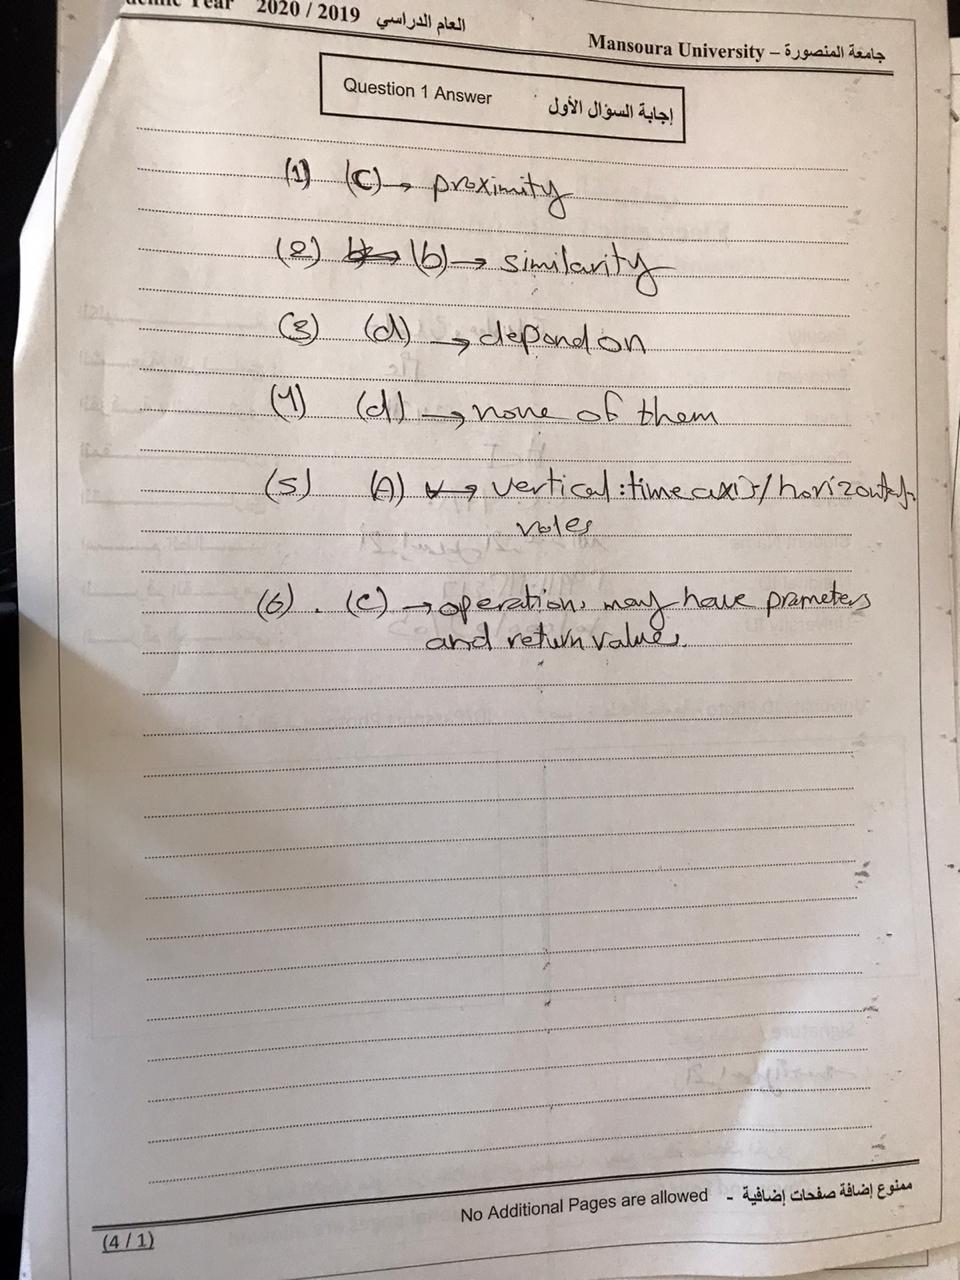 Year 2020 / 2019 العام الدراسي
Mansoura University – جامعة المنصورة
Question 1 Answer إجابة السؤال الأول
(1) (C) → proximity
(2) (b) → similarity
(3) (d) → depend on
(4) (d) → none of them
(5) (A) → vertical : time axis / horizontal:
(6) . (C) → operations may have prameters
and return values.
No Additional Pages are allowed - ممنوع إضافة صفحات إضافية
(4 / 1)